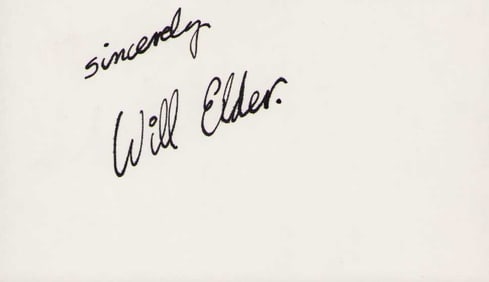 sincerely
Will Elder.